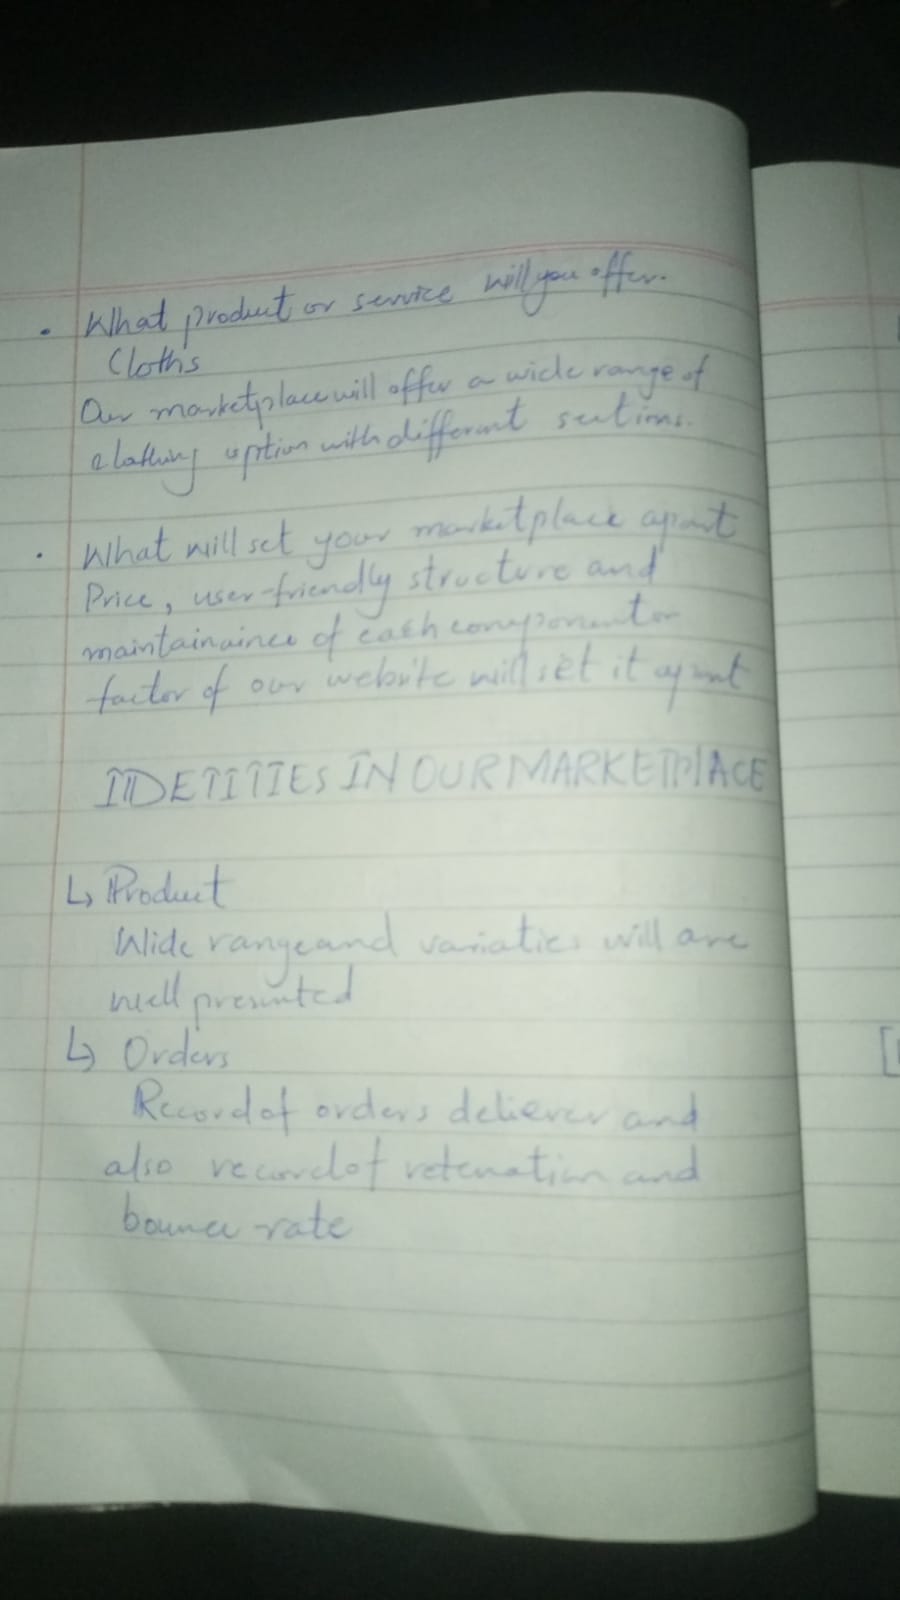 • What product or service will you offer.
Cloths
Our marketplace will offer a wide range of
clothing option with different sections.
• What will set your marketplace apart
Price, user-friendly structure and
maintainaince of each component or
factor of our website will set it apart
IDETITIES IN OUR MARKETPlACE
↳ Product
Wide range and variaties will are
well presented
↳ Orders
Record of orders deliever and
also record of retenation and
bounce rate
[